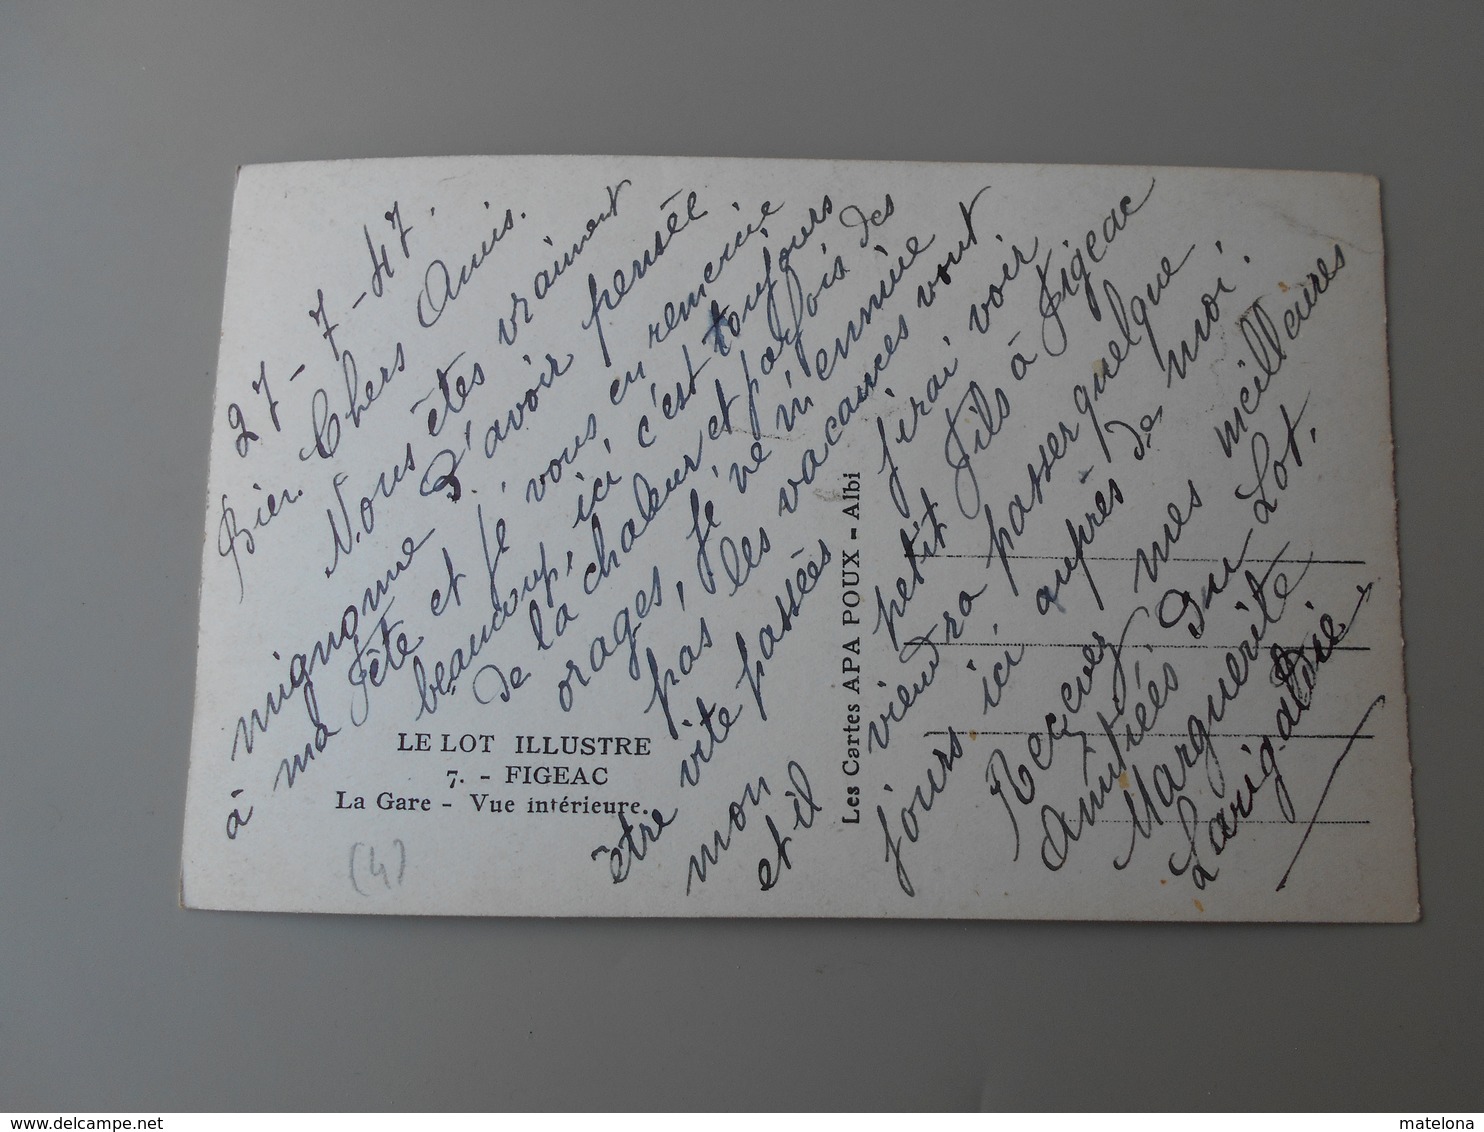 27-7-47.
Bien Chers Amis.
Vous êtes vraiment
mignonne d'avoir pensée
à ma Fête et je vous en remercie
beaucoup, ici, c'est toujours
de la chaleur et parfois des
orages, je ne m'ennuie
pas, les vacances vont
être vite passées j'irai voir
mon petit Fils à Figeac
et il viendra passer quelque
jours ici auprès de moi.
Recevez, mes meillaures
Amitiées du Lot.
Marguerite
Larigaldie
LE LOT ILLUSTRE
7. - FIGEAC
La Gare - Vue intérieure.
(4)
Les Cartes APA POUX - Albi
delcampe.net
matelona